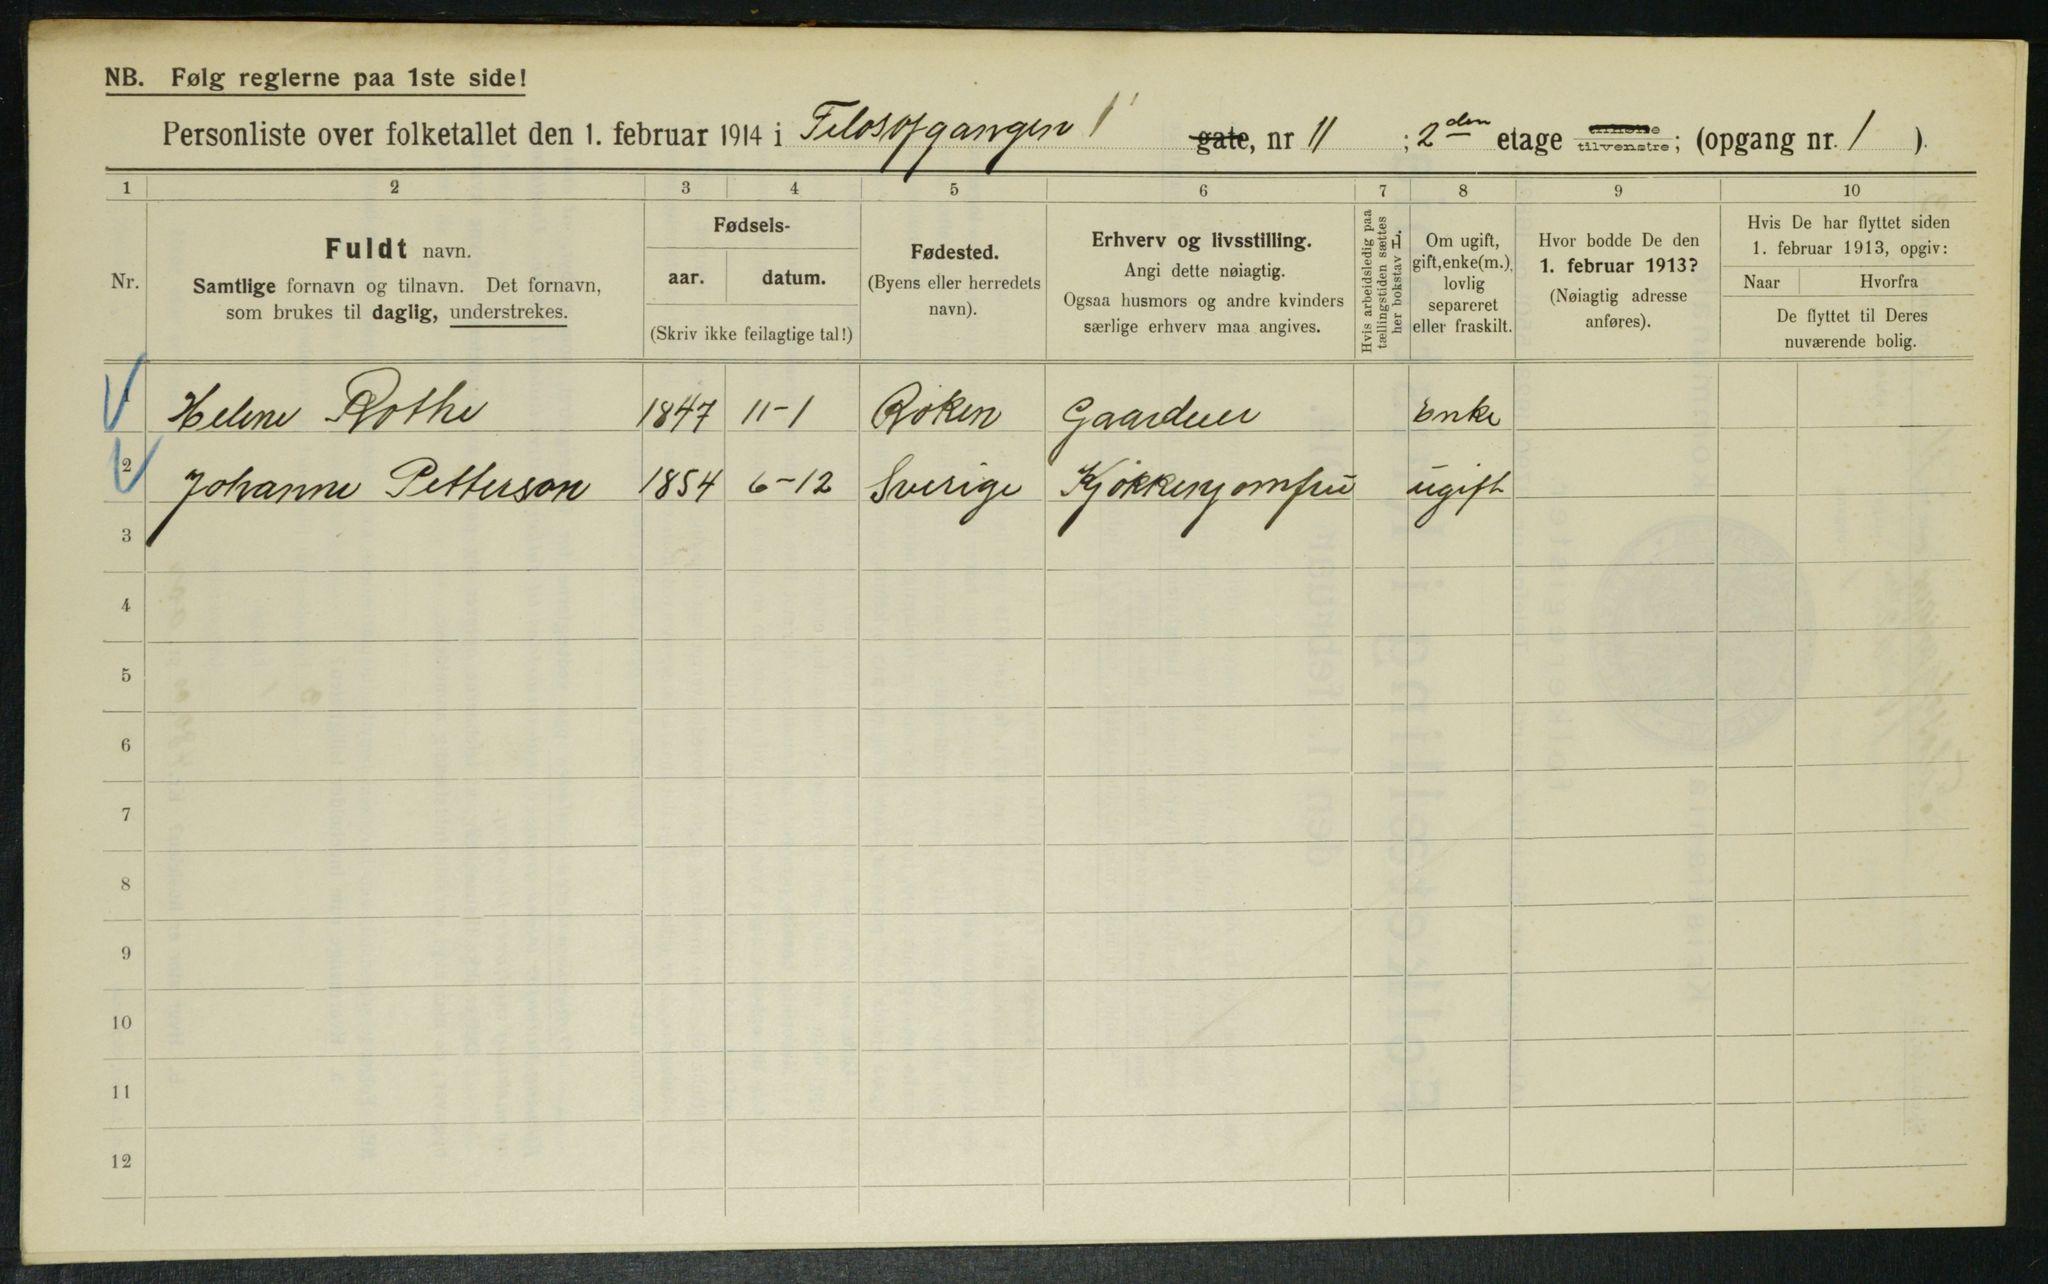 NB. Følg reglerne paa 1ste side!
Personliste over folketallet den 1. februar 1914 i Filosofgangen gate, nr 11 ; 2den etage tilhøire tilvenstre; (opgang nr. 1 ).
1 2 3 4 5 6 7 8 9 10
Nr.
Fuldt navn.
Samtlige fornavn og tilnavn. Det fornavn,
som brukes til daglig, understrekes.
Fødsels-
aar. datum.
(Skriv ikke feilagtige tal!)
Fødested.
(Byens eller herredets
navn).
Erhverv og livsstilling.
Angi dette nøiagtig.
Ogsaa husmors og andre kvinders
særlige erhverv maa angives.
Hvis arbeidsledig paa
tællingstiden sættes
her bokstav L.
Om ugift,
gift, enke(m.),
lovlig
separeret
eller fraskilt.
Hvor bodde De den
1. februar 1913?
(Nøiagtig adresse
anføres).
Hvis De har flyttet siden
1. februar 1913, opgiv:
Naar Hvorfra
De flyttet til Deres
nuværende bolig.
1 Helene Rothe 1847 11-1 Røken Gaardeier Enke
2 Johanne Petterson 1854 6-12 Sverige Kjøkkenjomfru ugift
3
4
5
6
7
8
9
10
11
12